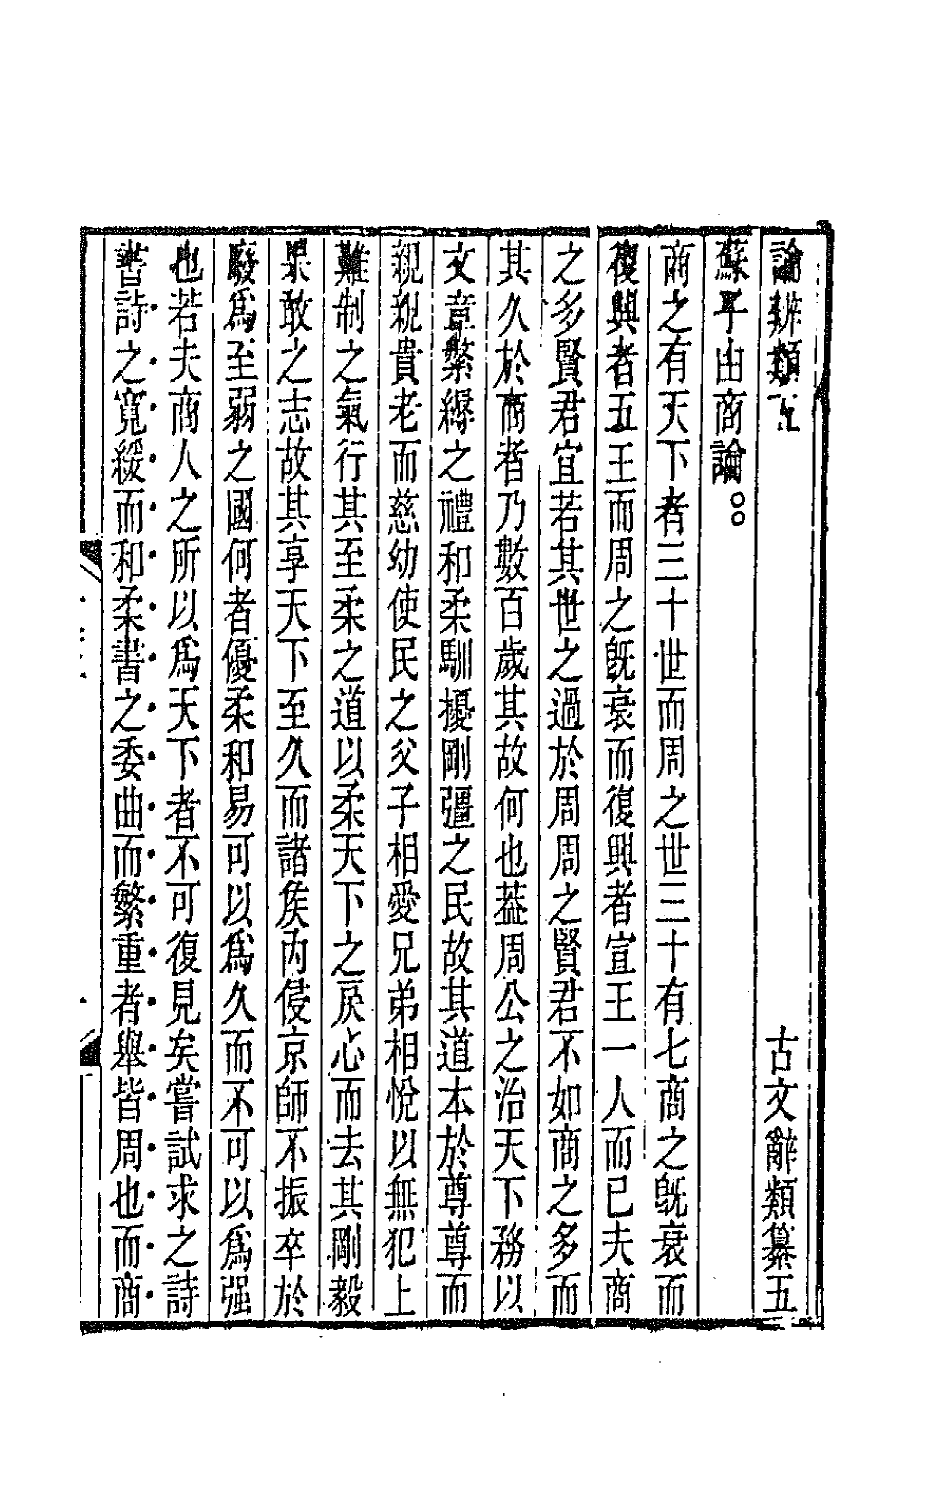 論辨類五　古文辭類纂五
蘇子由商論○○
商之有天下者三十世而周之世三十有七商之旣衰而
復興者五王而周之旣衰而復興者宣王一人而已夫商
之多賢君宜若其世之過於周周之賢君不如商之多而
其久於商者乃數百歲其故何也蓋周公之治天下務以
文章繁縟之禮和柔馴擾剛彊之民故其道本於尊尊而
親親貴老而慈幼使民之父子相愛兄弟相悅以無犯上
難制之氣行其至柔之道以柔天下之戾心而去其剛毅
果敢之志故其享天下至久而諸矦內侵京師不振卒於
廢爲至弱之國何者優柔和易可以爲久而不可以爲强
也若夫商人之所以爲天下者不可復見矣嘗試求之詩
書詩之寬緩而和柔書之委曲而繁重者舉皆周也而商